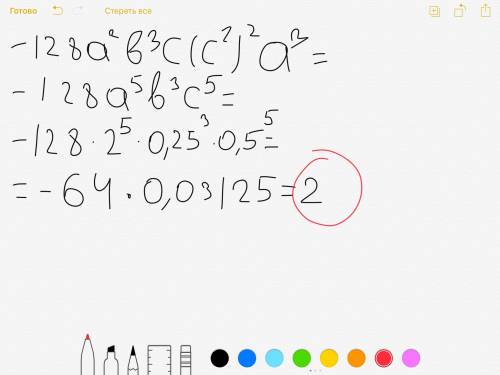 Готово Стереть все
-128a²b³c(c²)²a³=
-128a⁵b³c⁵=
-128·2⁵·0,25³·0,5⁵=
=-64·0,03125=2